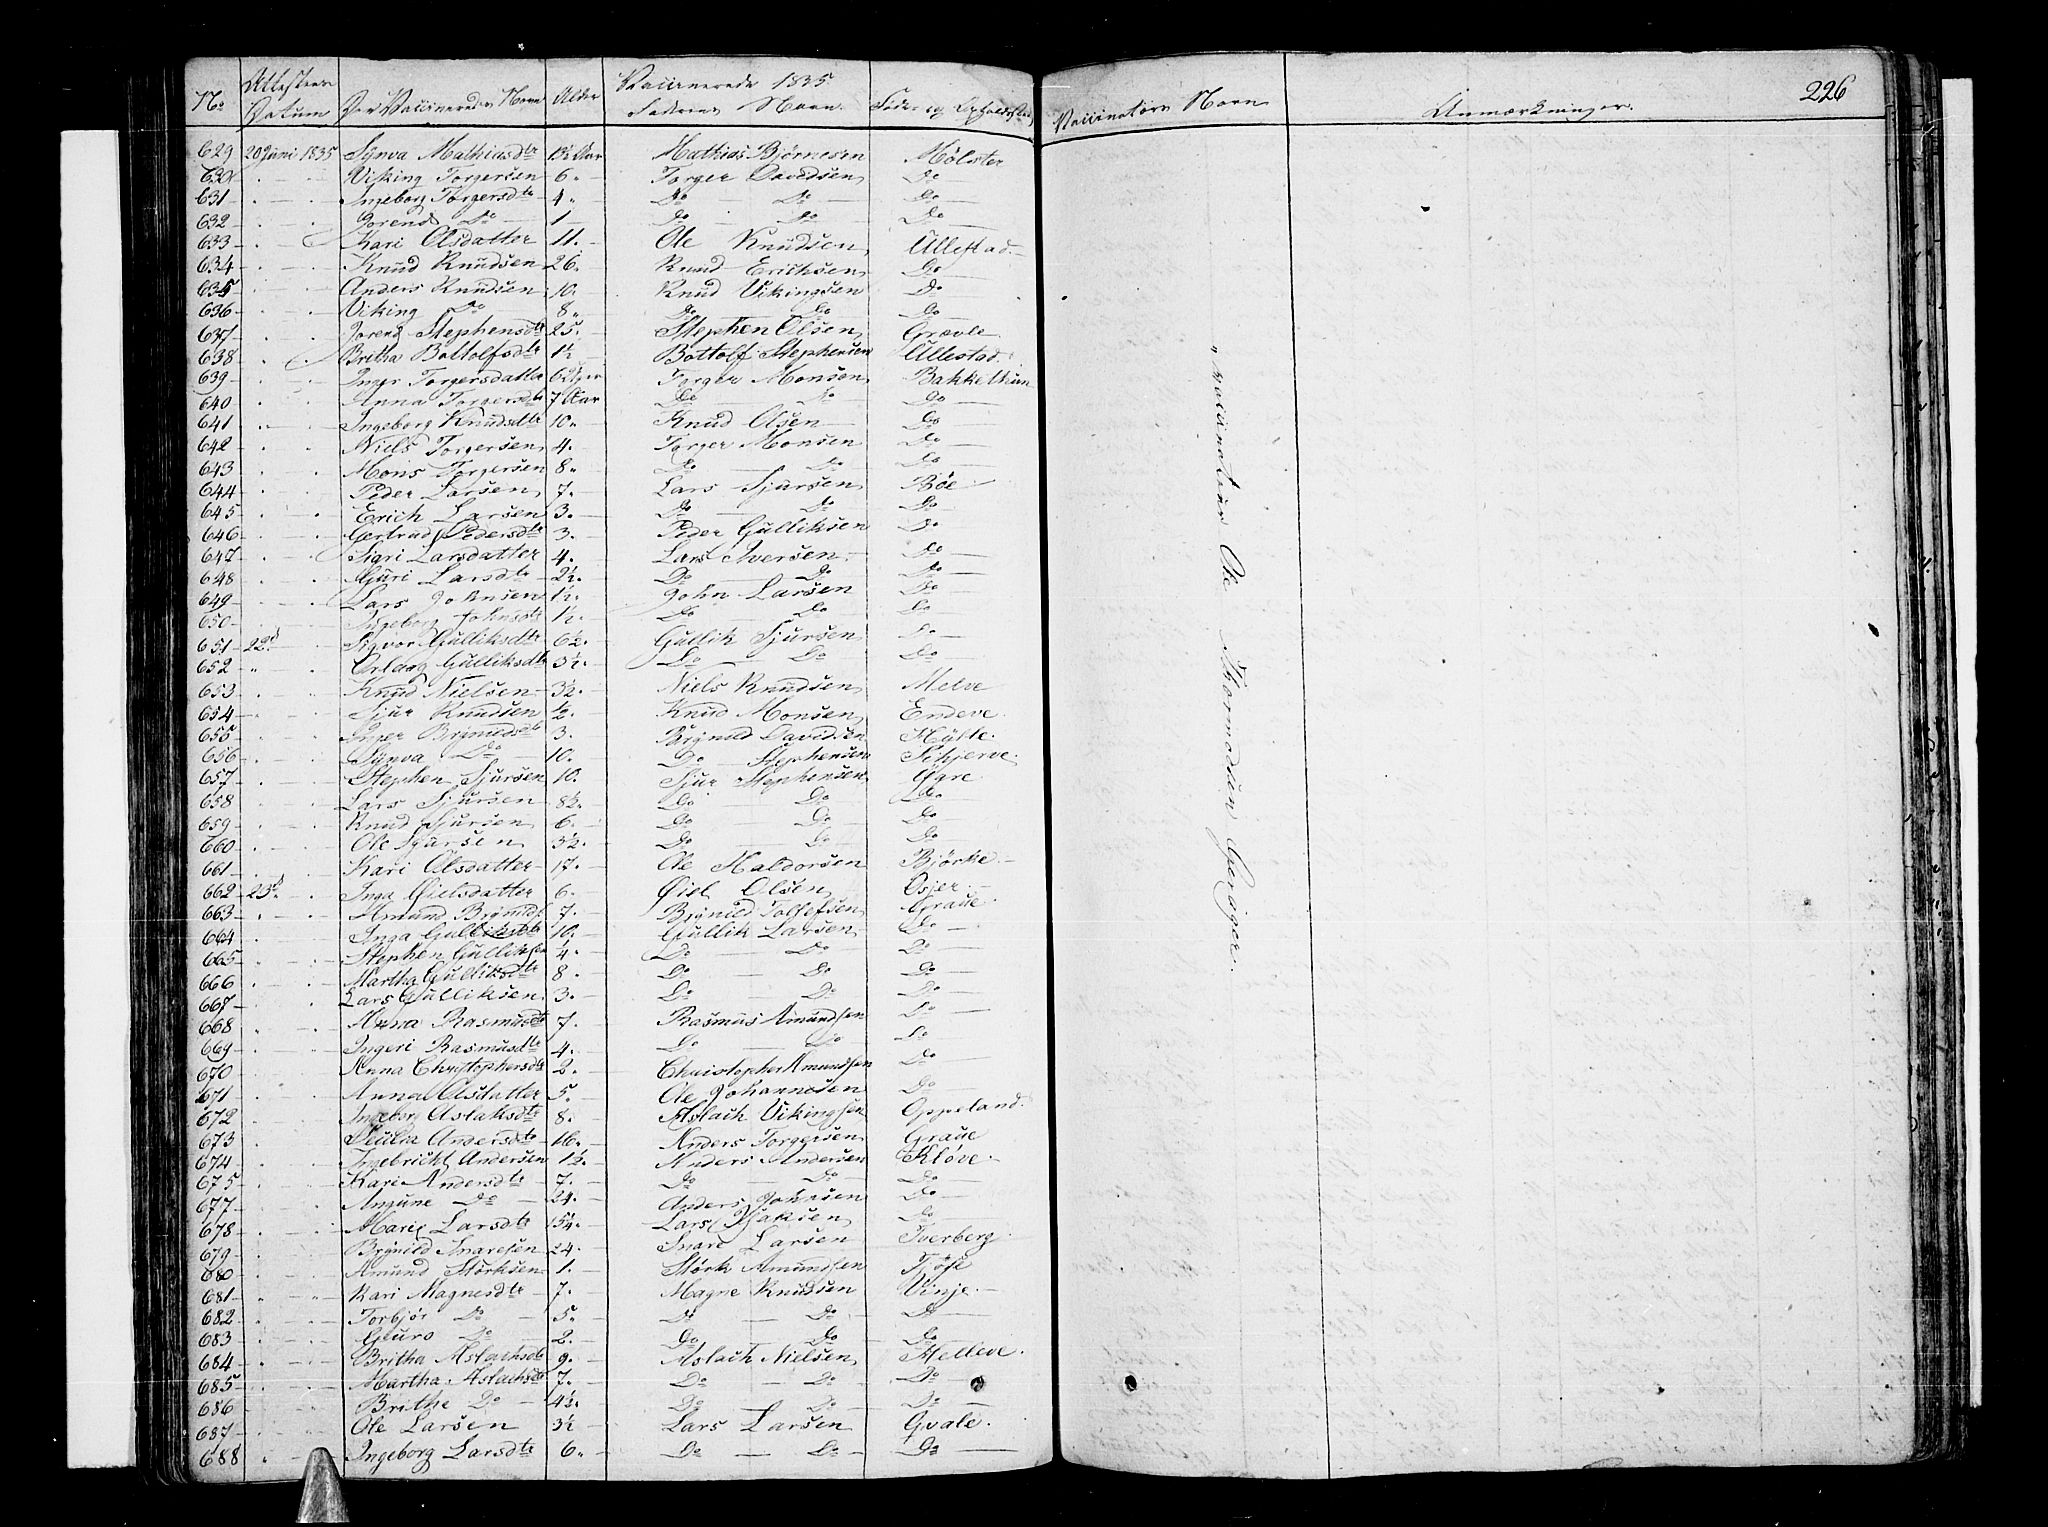 226
Vaccinerede 1835.
No Attestens Datum De Vaccineredes Navn Alder Faderens Navn. Føde- og Opholdssted Vaccinators Navn Anmærkninger.
629 20 Juni 1835 Synva Mathiasdtr 13½ Aar Mathias Bjørnesen Mølster
630 Viking Torgersen 6. Torger Davidsen Do
631 Ingeborg Torgersdtr 4 Do Do Do
632 Do 1 Do Do Do
633 Kari Olsdatter 11. Ole Knudsen Ullestad.
634 Knud Knudsen 26. Knud Erichsen Do
635 Anders Knudsen 10. Knud Vikingsen Do
636 Viking Do 8. Do Do Do
637 Stephensdtr 25. Stephen Olsen Grævle
638 Britha Bottolfsdtr 1½ Bottolf Stephensen Ullestad.
639 Inger Torgersdatter 6 Uger Torger Monsen Bakkethun
640 Anna Torgersdtr 7 Aar Do Do Do
641 Ingeborg Knudsdtr 10. Knud Olsen Do
642 Niels Torgersen 4. Torger Monsen Do
643 Mons Torgersen 8. Do Do Do
644 Peder Larsen 7. Lars Sjursen Bøe
645 Erich Larsen 3. Do Do Do
646 Gertrud Pedersdtr 3. Peder Gulliksen Do
647 Sigri Larsdatter 4. Lars Iversen Do
648 Guri Larsdtr 2½. Do Do Do
649 Lars Johnsen 1½. John Larsen Do
650 Ingeborg Johnsdtr 1½. Do Do Do
651 22d Sigvor Gulliksdtr 6½. Gullik Sjursen Do
652 Gulliksdtr 3½. Do Do Do
653 Knud Nielsen 3½. Niels Knudsen Melve
654 Sjur Knudsen ½. Knud Monsen Endeve.
655 Inger Brynildsdtr 3. Brynild Davidsen
656 Synva Do 10. Do Stephensen Schjerve.
657 Stephen Sjursen 10. Sjur Stephensen Øgre
658 Lars Sjursen 8½. Do Do Do
659 Knud Sjursen 6. Do Do Do
660 Ole Sjursen 3½. Do Do Do
661 Kari Olsdatter 17. Ole Haldorsen Bjørke.
662 23d Inga Øielsdatter 6. Øiel Olsen
663 Amund Brynilds. 7. Brynild Tollefsen Graue.
664 Inga Gulliksdtr 10. Gullik Larsen Do
665 Stephen Gulliksen ¼. Do Do Do
666 Martha Gulliksdtr 8. Do Do Do
667 Lars Gulliksen 3. Do Do Do
668 Anna Rasmusdtr 7. Rasmus Amundsen Do
669 Ingeri Rasmusdtr 4. Do Do Do
670 Anna Christophersdtr 2. Christopher Amundsen Do
671 Anna Olsdatter 5. Ole Johannesen Do
672 Ingeborg Aslaksdtr 8. Aslach Vikingsen Oppeland.
673 Andersdtr 16. Anders Torgersen Graue
674 Ingebricht Andersen 1½. Anders Andersen Kløve
675 Kari Andersdtr 7. Do Do Do
677 Do 24. Anders Johnsen Do
678 Mari Larsdtr 15¼. Lars Isaksen Do
679 Brynild Snaresen 24. Snare Larsen Tverberg
680 Amund Størksen 1. Størk Amundsen
681 Kari Magnesdtr 7. Magne Knudsen Vinje.
682 Torbjør Do 5. Do Do Do
683 Guro Do 2. Do Do Do
684 Britha Aslachsdtr 9. Aslach Nielsen Helleve.
685 Martha Aslachsdtr 7. Do Do Do
686 Brithe Do 4½. Do Do Do
687 Ole Larsen 3½ Lars Larsen Gvale.
688 Ingeborg Larsdtr 6. Do Do Do
Vaccinateur Ole Thormodsen Gierager.